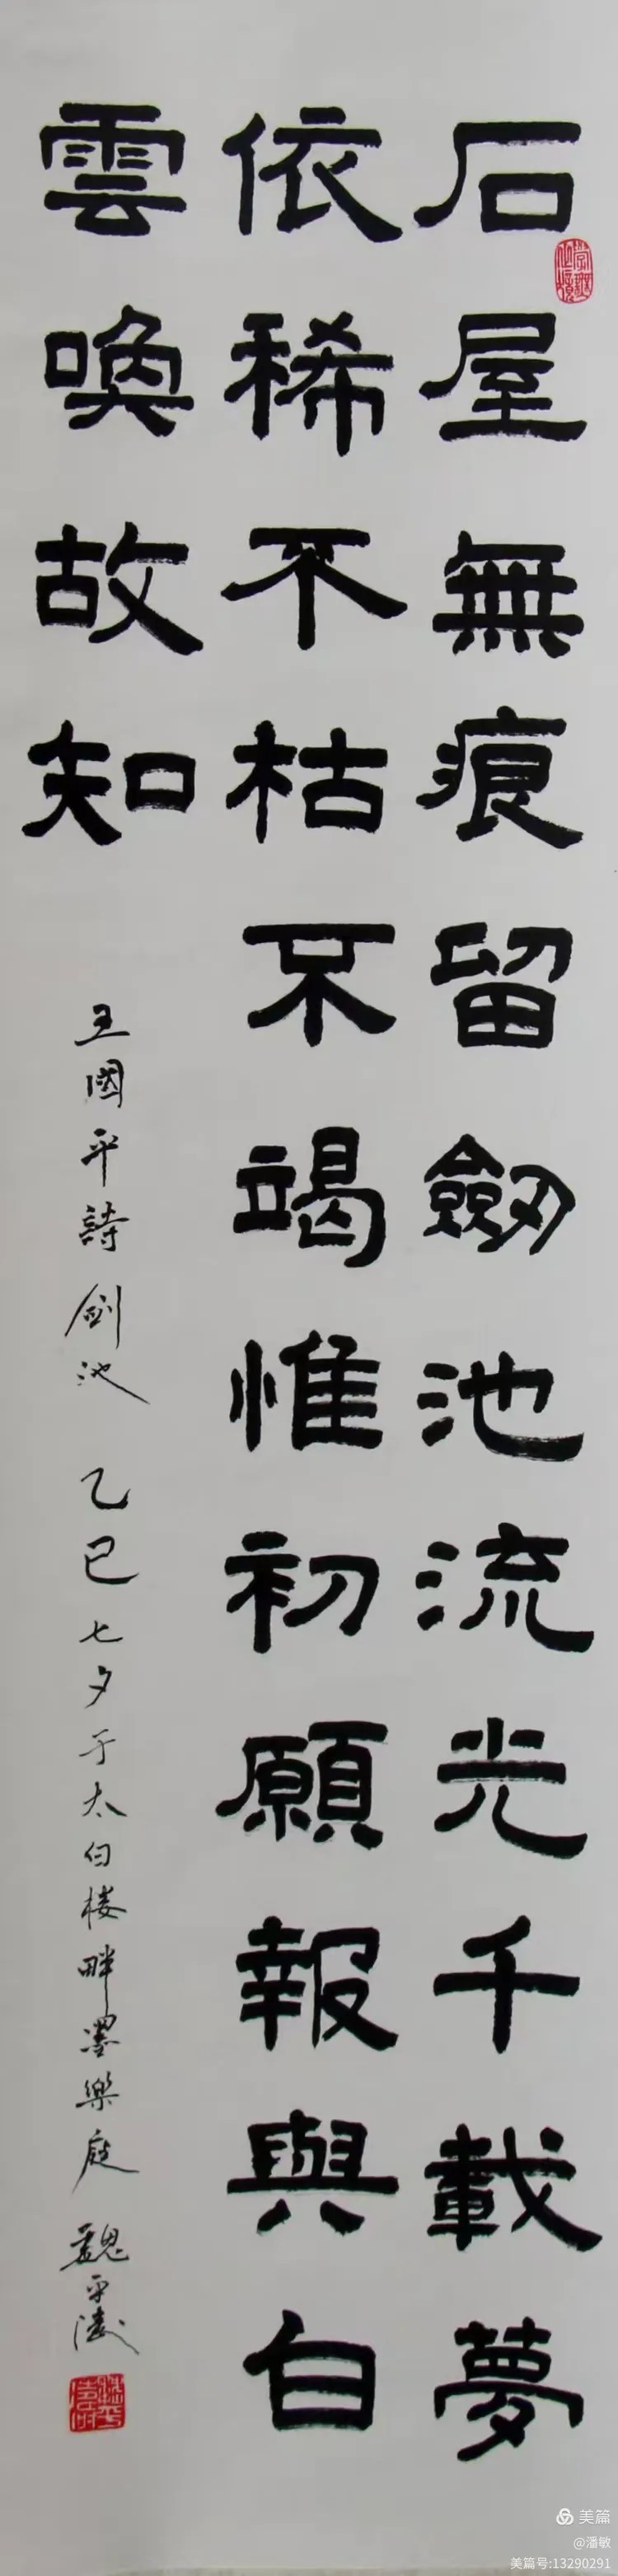 石屋無痕留劔池流光千載夢
依稀不枯不竭惟初願報與白
雲喚故知
王國平詩劍池 乙巳七夕于太白楼畔墨樂庭 魏平
美篇
@潘敏
美篇号:13290291